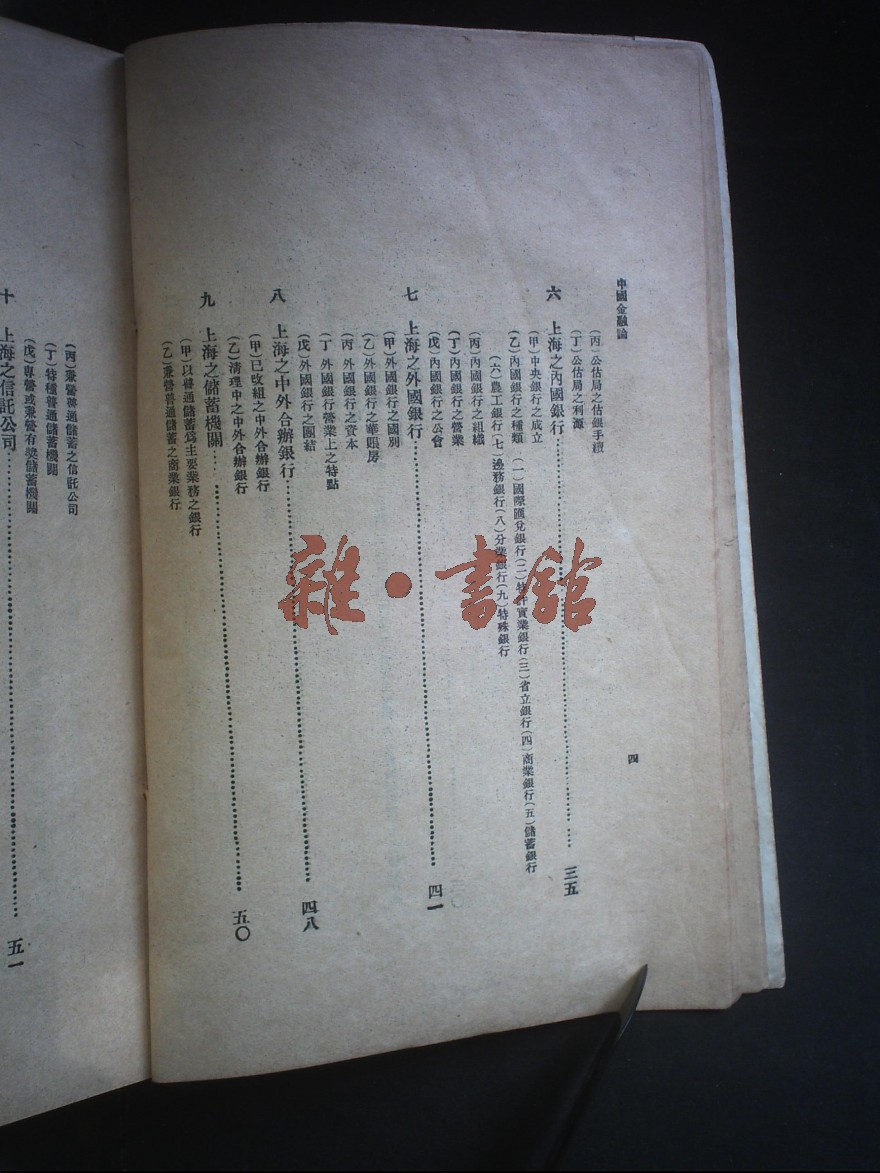 中國金融論
四
(丙)公估局之估銀手續
(丁)公估局之利源
六 上海之內國銀行……三五
(甲)中央銀行之成立
(乙)內國銀行之種類 (一)國際匯兌銀行(二)特許實業銀行(三)省立銀行(四)商業銀行(五)儲蓄銀行
(六)農工銀行(七)邊務銀行(八)分業銀行(九)特殊銀行
(丙)內國銀行之組織
(丁)內國銀行之營業
(戊)內國銀行之公會
七 上海之外國銀行……四一
(甲)外國銀行之國別
(乙)外國銀行之華賬房
(丙 外國銀行之資本
(丁 外國銀行營業上之特點
(戊)外國銀行之團結
八 上海之中外合辦銀行……四八
(甲)已改組之中外合辦銀行
(乙)清理中之中外合辦銀行
九 上海之儲蓄機關……五〇
(甲)以普通儲蓄爲主要業務之銀行
(乙)兼營普通儲蓄之商業銀行
(丙)兼營普通儲蓄之信託公司
(丁)特種普通儲蓄機關
(戊)專營或兼營有獎儲蓄機關
十 上海之信託公司……五一
雜·書館